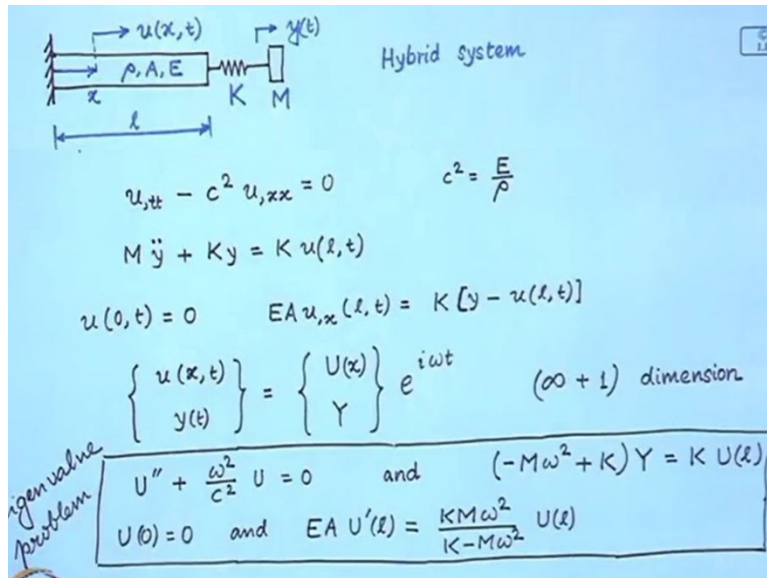 u(x,t)
y(t)
Hybrid system
ρ, A, E
x
K
M
l
u,tt − c² u,xx = 0
c² = E/ρ
M ÿ + K y = K u(l,t)
u(0,t) = 0
EA u,x(l,t) = K [y − u(l,t)]
{ u(x,t) y(t) } = { U(x) Y } e^{iωt}
(∞ + 1) dimension
problem
U'' + ω²/c² U = 0 and (−Mω² + K) Y = K U(l)
U(0) = 0 and EA U'(l) = KMω²/(K−Mω²) U(l)